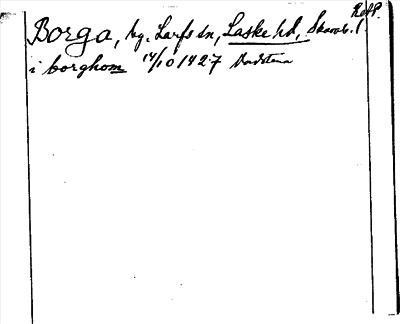 RAÄ.
Borga, by, Larfs sn, Laske hd, Skarab. l
i borghom 14/10 1427 Vadstena